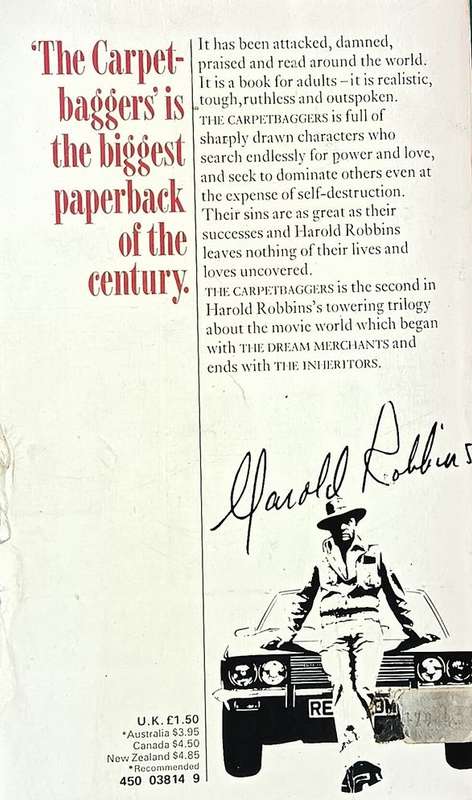 'The Carpet-
baggers' is
the biggest
paperback
of the
century.
It has been attacked, damned,
praised and read around the world.
It is a book for adults – it is realistic,
tough, ruthless and outspoken.
THE CARPETBAGGERS is full of
sharply drawn characters who
search endlessly for power and love,
and seek to dominate others even at
the expense of self-destruction.
Their sins are as great as their
successes and Harold Robbins
leaves nothing of their lives and
loves uncovered.
THE CARPETBAGGERS is the second in
Harold Robbins's towering trilogy
about the movie world which began
with THE DREAM MERCHANTS and
ends with THE INHERITORS.
Harold Robbins
RE
U.K. £1.50
*Australia $3.95
Canada $4.50
New Zealand $4.85
*Recommended
450 03814 9